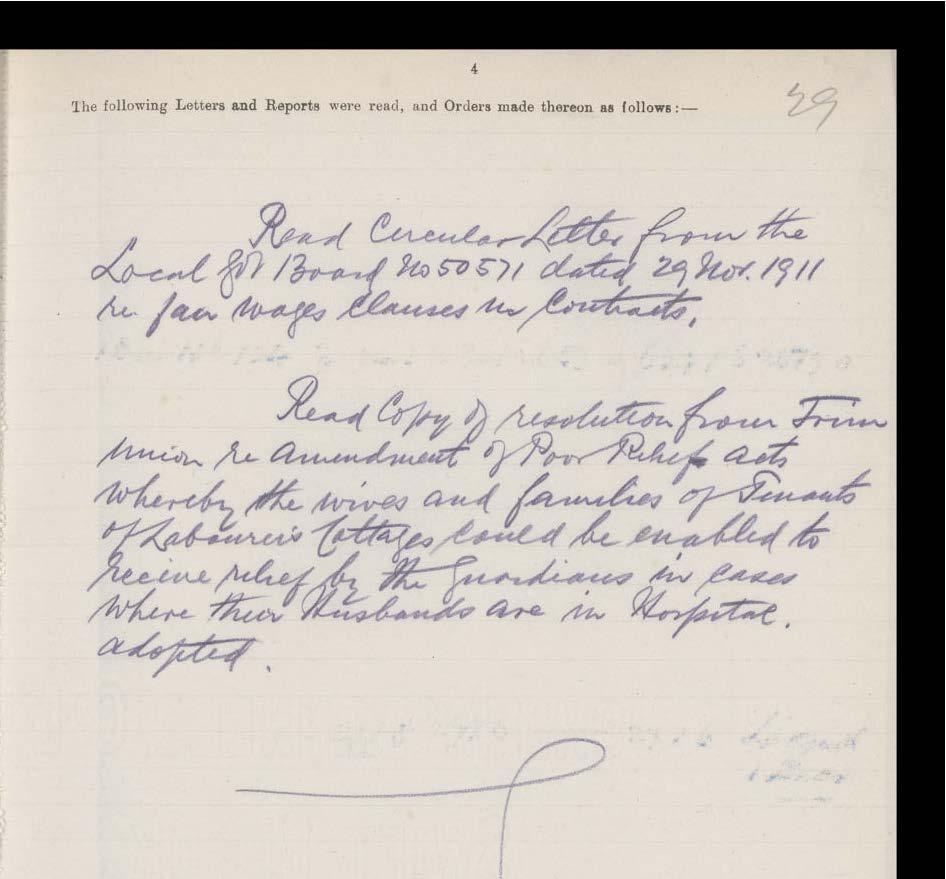 4
The following Letters and Reports were read, and Orders made thereon as follows:—
29
Read Circular Letter from the
Local Gvt Board No 50571 dated 29 Nov. 1911
re. fair wages Clauses in Contracts.
Read Copy of resolution from Trim
Union re Amendment of Poor Relief acts
whereby the wives and families of Tenants
of Labourers Cottages could be enabled to
receive relief by the Guardians in cases
where their Husbands are in Hospital.
adopted.